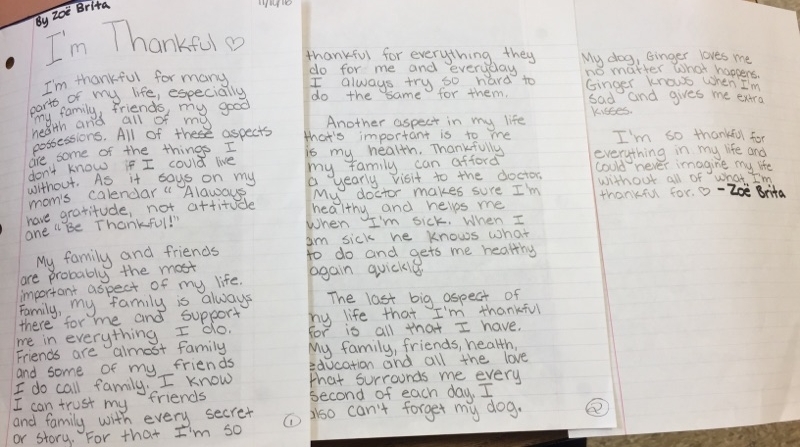 By Zoë Brita
11/10/16
I'm Thankful ♡
I'm thankful for many
parts of my life, especially
my family, friends, my good
health and all of my
possessions. All of these aspects
are some of the things I
don't know if I could live
without. As it says on my
mom's calendar "Alaways
have gratitude, not attitude
and "Be Thankful!"
My family and friends
are probably the most
important aspect of my life.
Family, my family is always
there for me and support
me in everything I do.
Friends are almost family
and some of my friends
I do call family. I know
I can trust my friends
and family with every secret
or story. For that I'm so
1
thankful for everything they
do for me and everyday
I always try so hard to
do the same for them.
Another aspect in my life
that's important is to me
is my health. Thankfully
my family can afford
a yearly visit to the doctor.
My doctor makes sure I'm
healthy and helps me
when I'm sick. When I
am sick he knows what
to do and gets me healthy
again quickly.
The last big aspect of
my life that I'm thankful
for is all that I have.
My family, friends, health,
education and all the love
that surrounds me every
second of each day. I
also can't forget my dog.
2
My dog, Ginger loves me
no matter what happens.
Ginger knows when I'm
sad and gives me extra
kisses.
I'm so thankful for
everything in my life and
could never imagine my life
without all of what I'm
thankful for. ♡ - Zoë Brita